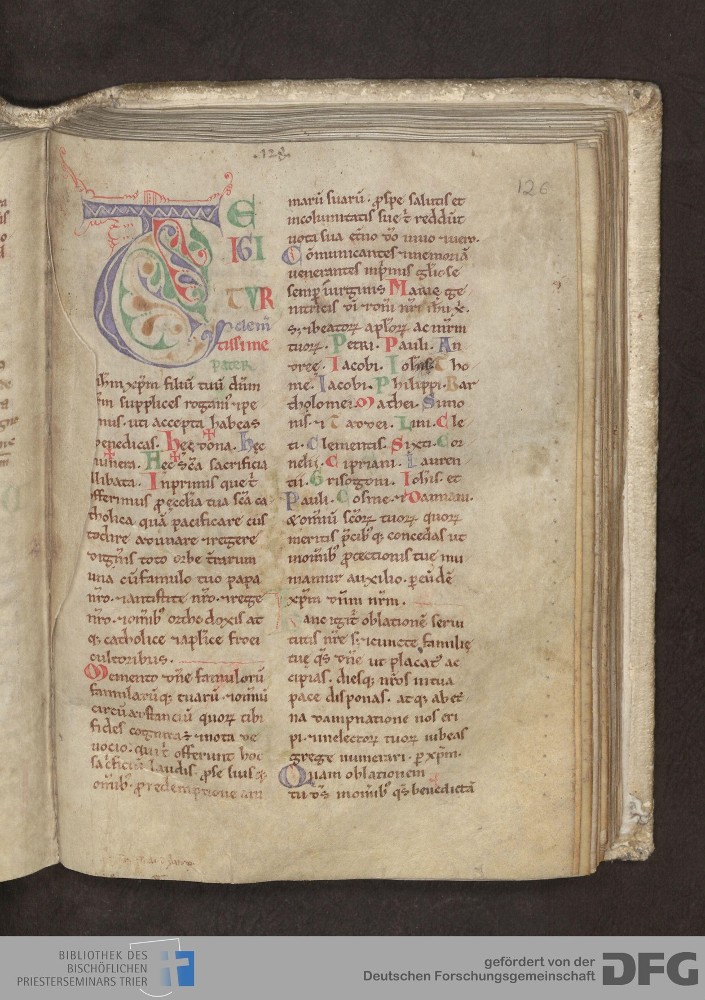 .128.
126
TE
IGI
TVR
clem̄
tissime
pater
ihm̄ xp̄m filiū tuū dn̄m
nr̄m supplices rogam᷒ ⁊ pe
nus. uti accepta habeas
benedicas. Hęc dona. Hęc
munera. Hęc sc̄a sacrificia
illibata. Inprimis que t᷑
offerimus ꝓ ęccl̄ia tua sc̄a ca
tholica. quā pacificare cus
todire adunare ⁊ regere
digneris toto orbe t᷑rarum
una cū famulo tuo papa
nr̄o. ⁊ antistite nr̄o. ⁊ rege
nr̄o. ⁊ om̄ib᷒ orthodoxis at
q; catholice ⁊ ap̄lice fidei
cultoribus.
Memento dn̄e famulorū
famularūq; tuarū. ⁊ om̄iū
circū astanciū quoꝝ tibi
fides cognita ÷ ⁊ nota de
uocio. qui t᷑ offerunt hoc
sac̄ficiū laudis. ꝓ se suisq;
om̄ib᷒. ꝓ redemptione ani
marū suarū. ꝓ spe salutis et
incolumitatis sue t᷑ reddūt
uota sua et᷑no d̄o uiuo ⁊ uero.
Cōmunicantes ⁊ memoriā
uenerantes inp̄mis gl̄ose
semp̱ uirginis Marię ge
nitricis di᷑ ⁊ dn̄i nr̄i ih̄u x̄.
S; ⁊ beatoꝝ apl̄oꝝ ac mr̄m
tuoꝝ. Petri. Pauli. An
dreę. Iacobi. Ioh̄is. Tho
me. Iacobi. Philippi. Bar
tholomei. Mathei. Simo
nis. ⁊ Taddei. Lini. Cle
ti. Clementis. Sixti. Cor
nelii. Cipriani. Lauren
tii. Grisogoni. Ioh̄is. et
Pauli. Cosme. ⁊ Damiani.
& om̄iū sc̄oꝝ tuoꝝ. quoꝝ
meritis p̄cib᷒q; concedas ut
in om̄ib᷒ ꝓtectionis tue mu
niamur auxilio. ꝑ eūdē
xp̄m dn̄m nr̄m.
Hanc igit᷑ oblationē serui
tutis nr̄e s; ⁊ cuncte familię
tuę q̄s dn̄e ut placat᷒ ac
cipias. diesq; nr̄os in tua
pace disponas. atq; ab et᷑
na dampnatione nos eri
pi. ⁊ in electoꝝ tuoꝝ iubeas
grege numerari. ꝑ xp̄m.
Quam oblationem
tu d̄s in om̄ib᷒ q̄s benedictā
BIBLIOTHEK DES
BISCHÖFLICHEN
PRIESTERSEMINARS TRIER
gefördert von der
Deutschen Forschungsgemeinschaft
DFG